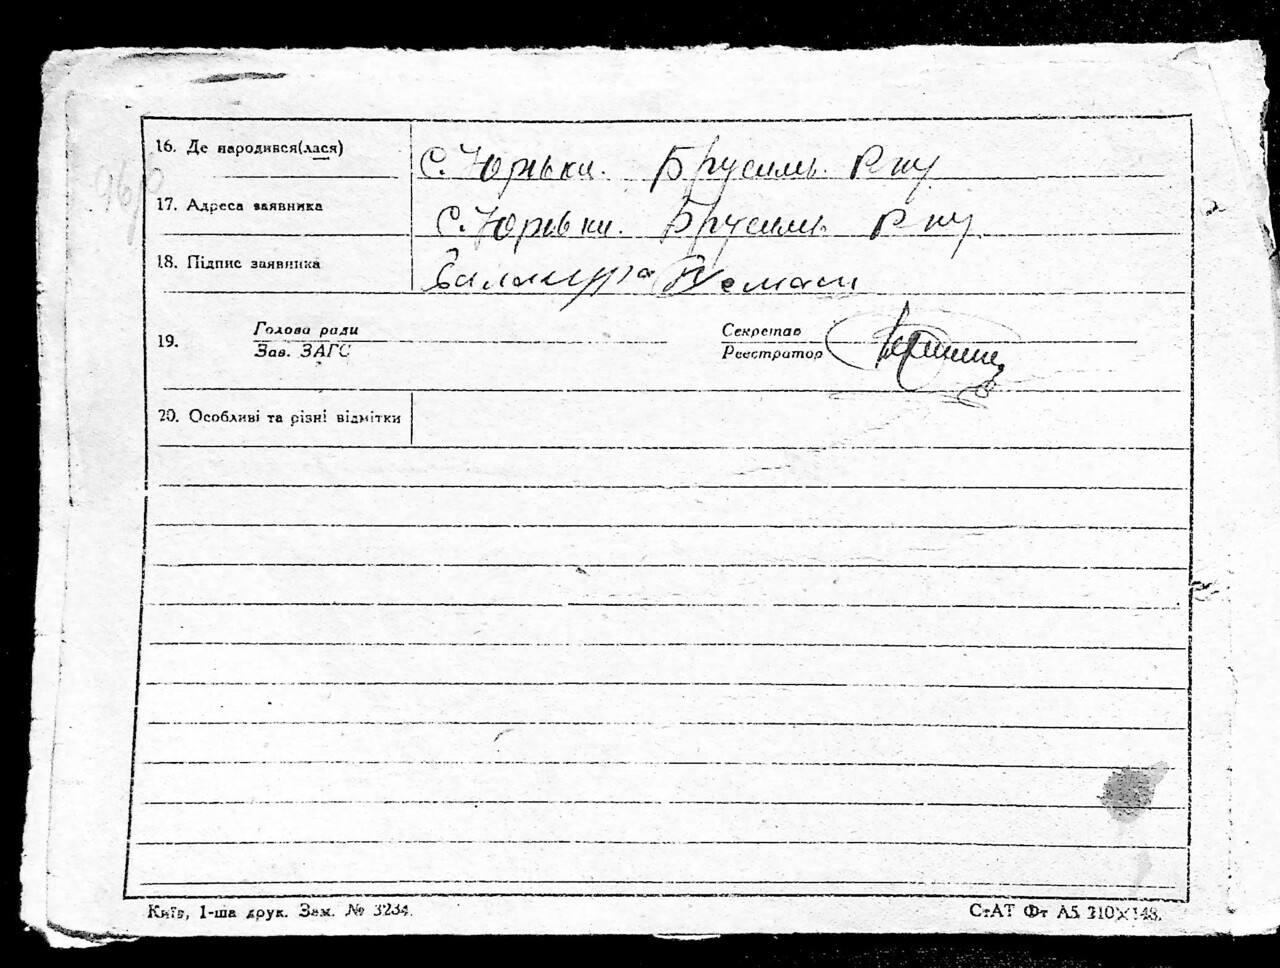 16. Де народився(лася)
с. Юрьки. Брусиль. Р-ну
17. Адреса заявника
с. Юрьки. Брусиль. Р-ну
18. Підпис заявника
19. Голова ради
Зав. ЗАГС
Секретар
Реєстратор
20. Особливі та різні відмітки
Київ, 1-ша друк. Зам. № 3234.
СтАТ Фт А5 210×148.